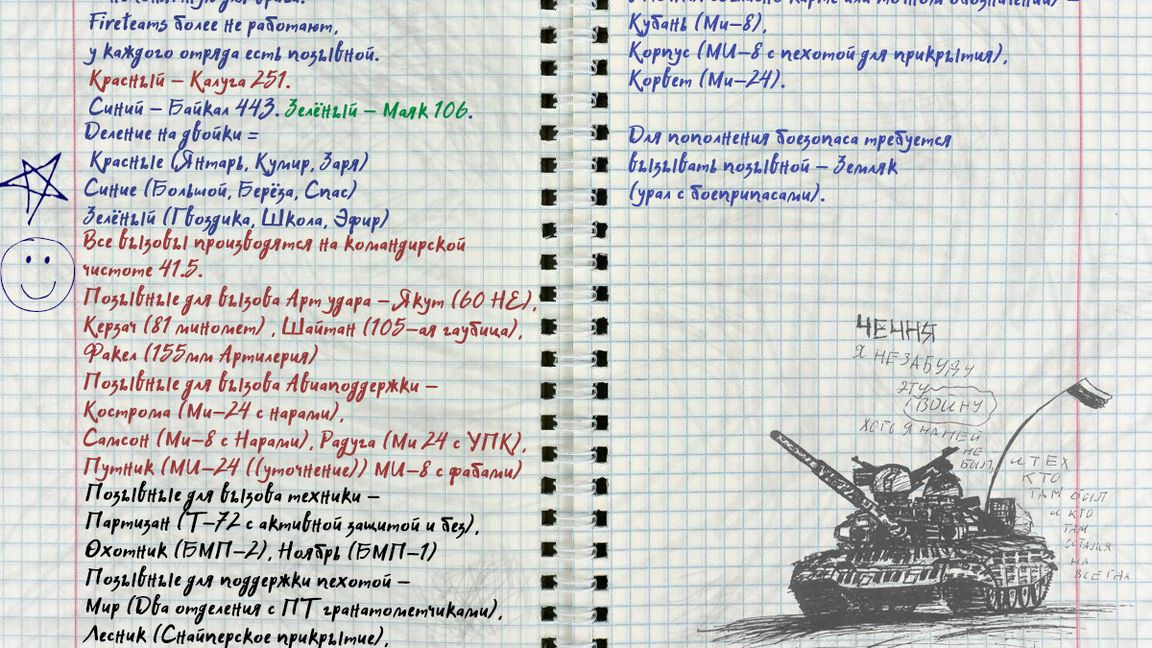 Fireteams более не работают,
у каждого отряда есть позывной.
Красный – Калуга 251.
Синий – Байкал 443. Зелёный – Маяк 106.
Деление на двойки =
Красные (Янтарь, Кумир, Заря)
Синие (Большой, Берёза, Спас)
Зелёный (Гвоздика, Школа, Эфир)
Все вызовы производятся на командирской
чистоте 41.5.
Позывные для вызова Арт удара – Якут (60 НЕ),
Керзач (81 миномет) , Шайтан (105-ая гаубица),
Факел (155мм Артилерия)
Позывные для вызова Авиаподдержки –
Кострома (Ми-24 с нарами),
Самсон (Ми-8 с Нарами), Радуга (Ми 24 с УПК),
Путник (МИ-24 ((уточнение)) МИ-8 с фабами)
Позывные для вызова техники –
Партизан (Т-72 с активной защитой и без),
Охотник (БМП-2), Ноябрь (БМП-1)
Позывные для поддержки пехотой –
Мир (Два отделения с ПТ гранатометчиками),
Лесник (Снайперское прикрытие),
Кубань (Ми-8),
Корпус (МИ-8 с пехотой для прикрытия),
Корвет (Ми-24).
Для пополнения боезопаса требуется
вызывать позывной – Земляк
(урал с боеприпасами).
ЧЕЧНЯ
Я НЕ ЗАБУДУ
ЭТУ
ВОЙНУ
ХОТЬ Я НА НЕЙ
НЕ
БЫЛ,
И ТЕХ
КТО
ТАМ БЫЛ
И КТО
ТАМ
ОСТАЛСЯ
НА
ВСЕГДА